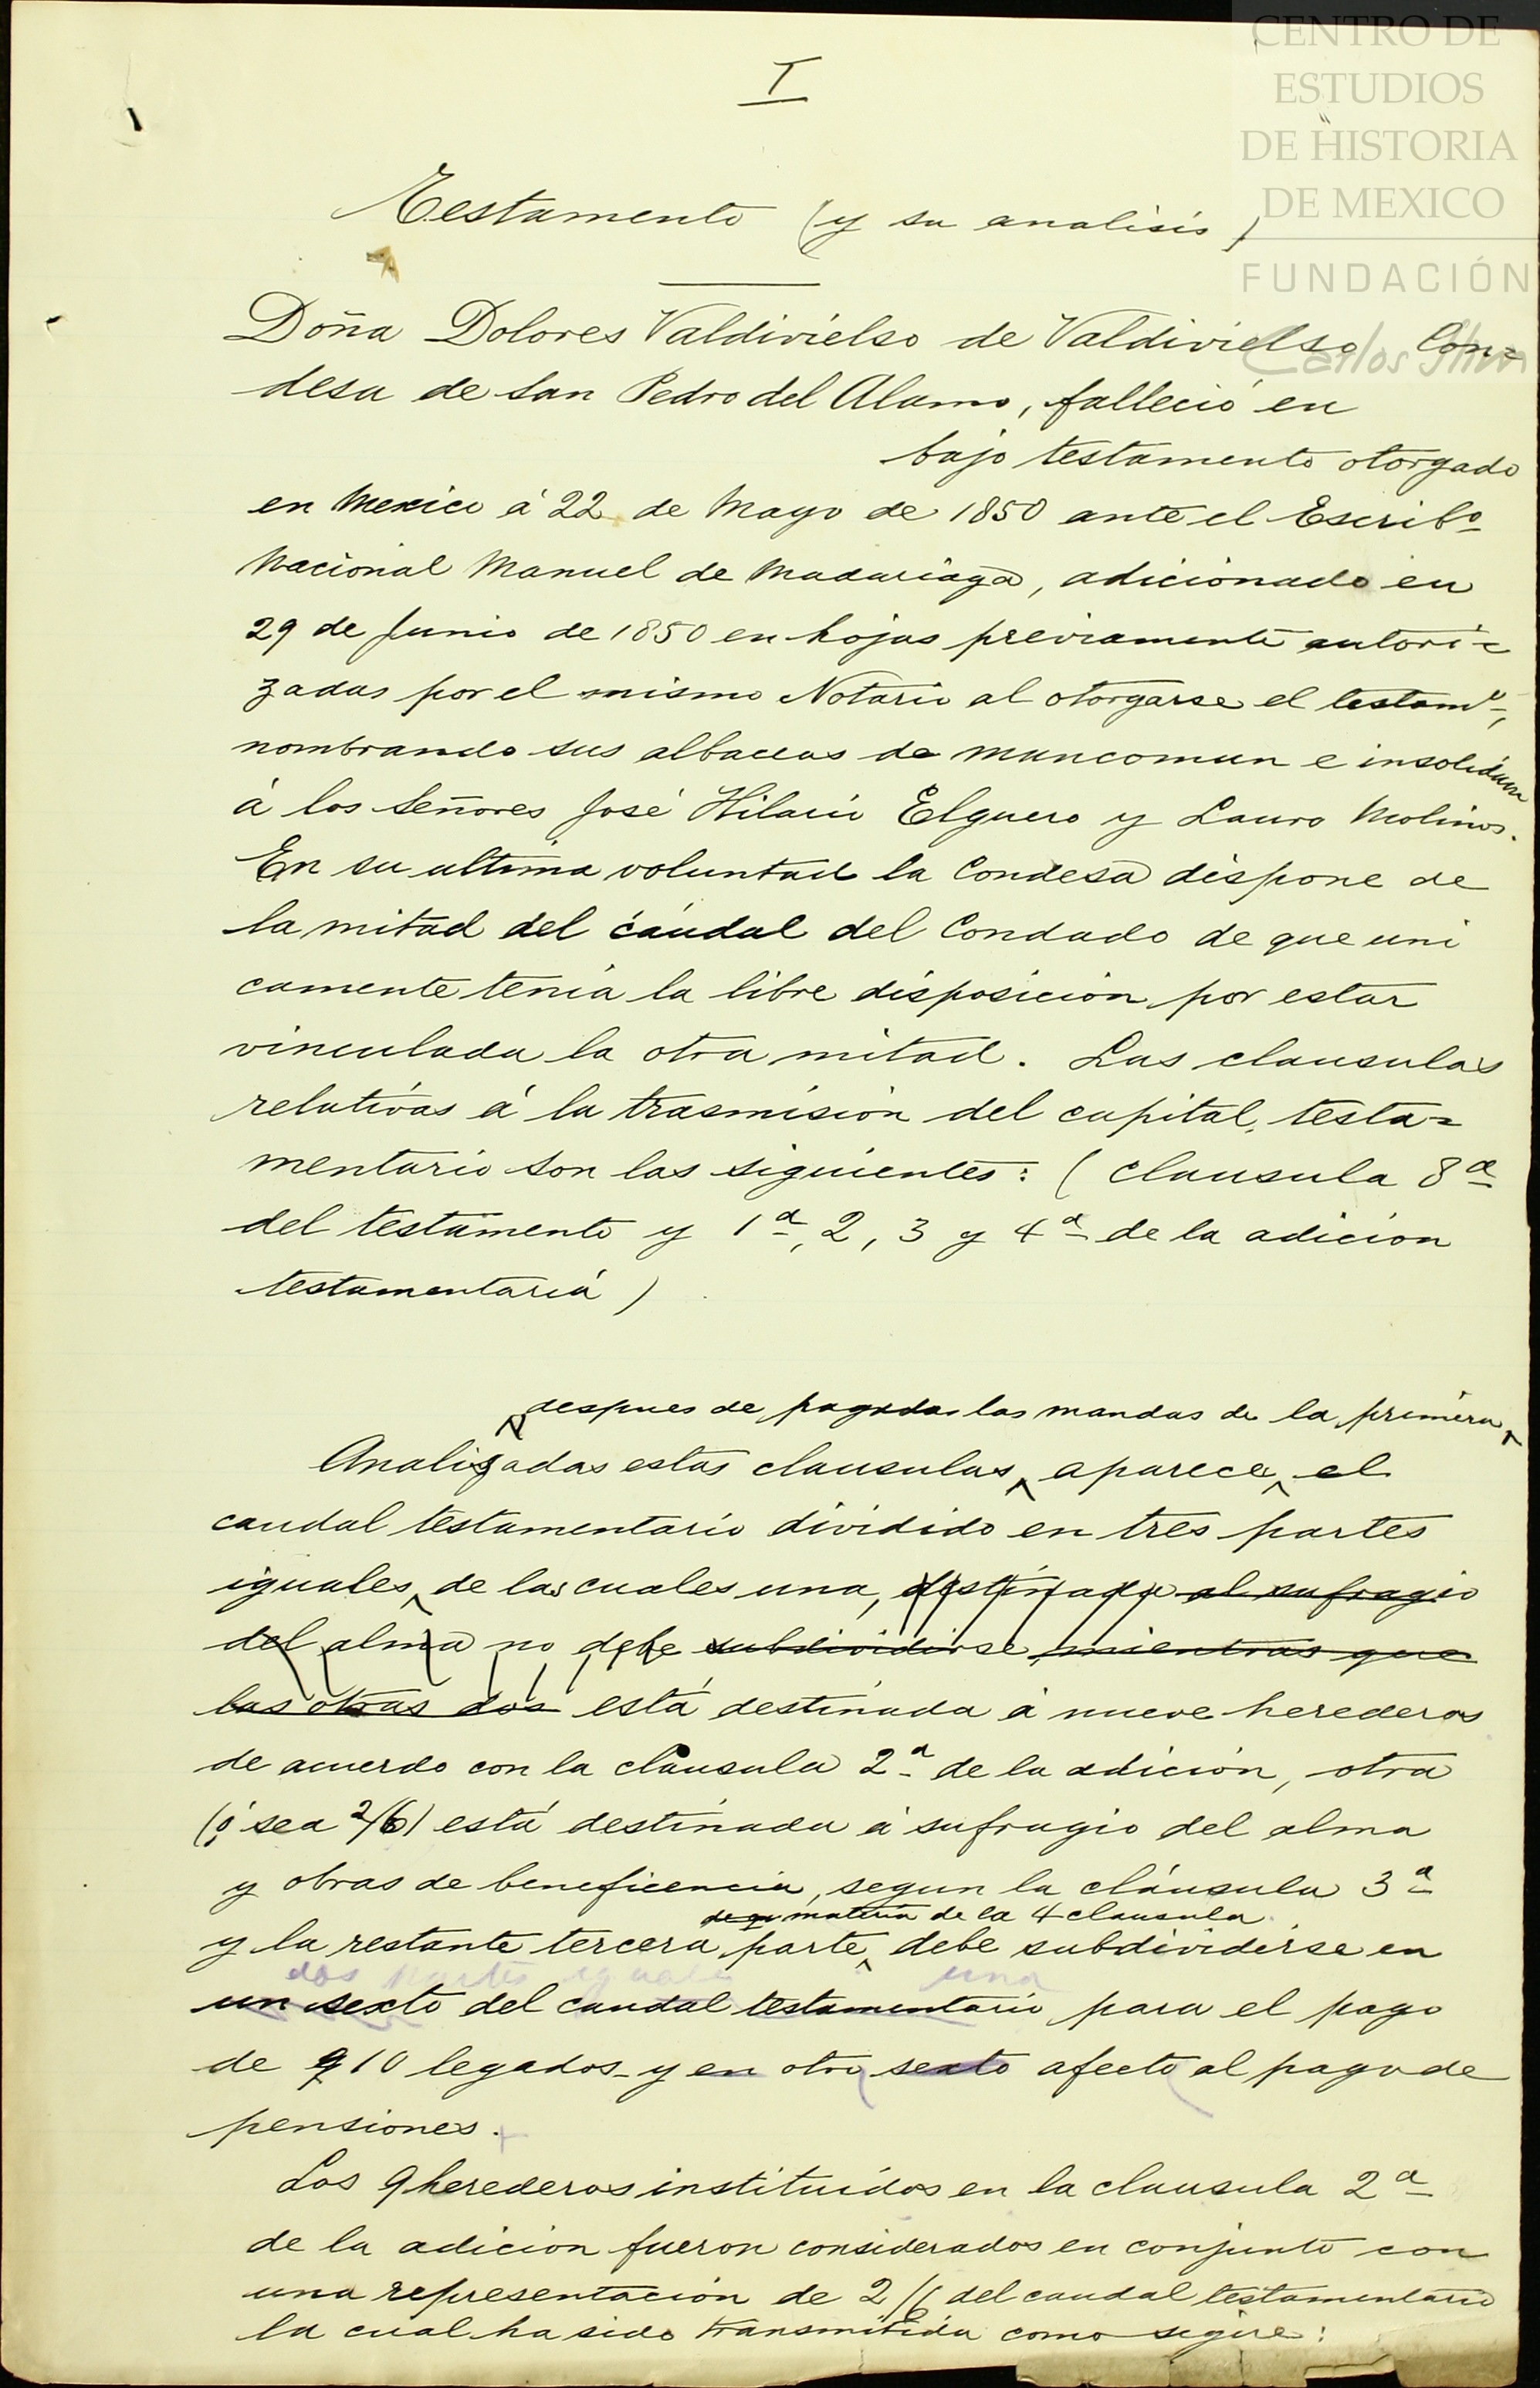 I
CENTRO DE
ESTUDIOS
DE HISTORIA
DE MEXICO
FUNDACIÓN
Carlos Slim
Testamento (y su analisis)
Doña Dolores Valdivielso de Valdivielso Con=
desa de San Pedro del Alamo, falleció en
bajo testamento otorgado
en Mexico á 22 de Mayo de 1850 ante el Escribº
Nacional Manuel de Madariaga, adicionado en
29 de Junio de 1850 en hojas previamente autori=
zadas por el mismo Notario al otorgarse el testamtº,
nombrando sus albaceas de mancomun e insolidum
á los Señores José Hilario Elguero y Lauro Molinos.
En su ultima voluntad la Condesa dispone de
la mitad del caudal del Condado de que uni
camente tenia la libre disposicion por estar
vinculada la otra mitad. Las clausulas
relativas á la trasmision del capital testa=
mentario son las siguientes: (clausula 8ª
del testamento y 1ª, 2, 3 y 4ª de la adicion
testamentaria)
despues de pagadas las mandas de la primera
Analizadas estas clausulas, aparece el
caudal testamentario dividido en tres partes
iguales, de las cuales una, destinada al sufragio
del alma no debe subdividirse mientras que
las otras dos está destinada á nueve herederos
de acuerdo con la clausula 2ª de la adicion, otra
(ó sea 2/6) está destinada á sufragio del alma
y obras de beneficencia, segun la cláusula 3ª
de qe materia de la 4 clausula
y la restante tercera parte, debe subdividirse en
dos partes iguales una
un sexto del caudal testamentario para el pago
de 910 legados y en otro sexto afecto al pago de
pensiones.
Los 9 herederos instituidos en la clausula 2ª
de la adicion fueron considerados en conjunto con
una representación de 2/6 del caudal testamentario
la cual ha sido transmitida como sigue: